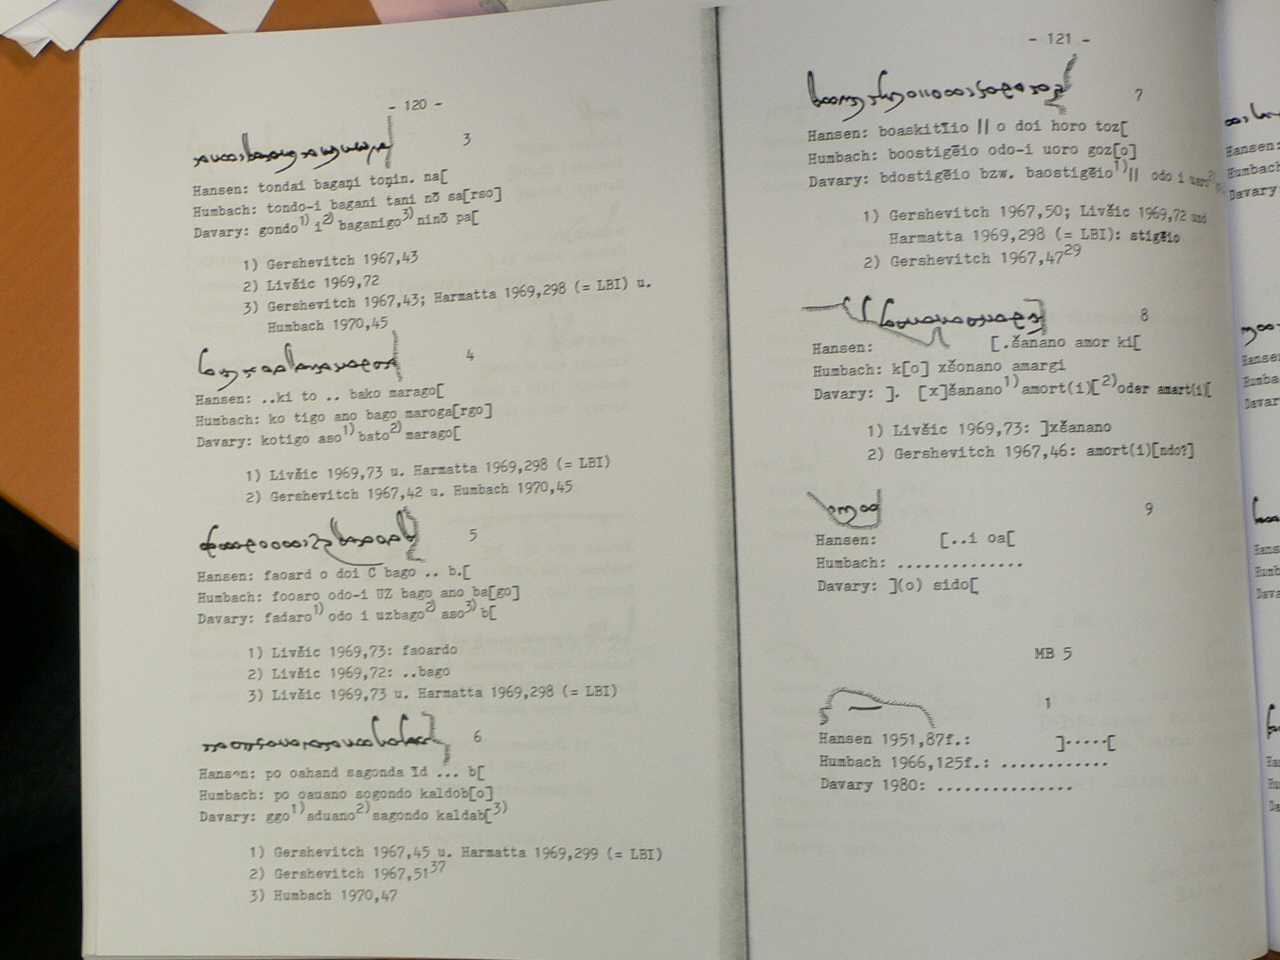 - 120 -
3
Hansen: tondai bagaṇi toṇin. na[
Humbach: tondo-i bagani tani nō sa[rso]
Davary: gondo1) i2) baganigo3) ninō pa[
1) Gershevitch 1967,43
2) Livšic 1969,72
3) Gershevitch 1967,43; Harmatta 1969,298 (= LBI) u.
Humbach 1970,45
4
Hansen: ..ki to .. bako marago[
Humbach: ko tigo ano bago maroga[rgo]
Davary: kotigo aso1) bato2) marago[
1) Livšic 1969,73 u. Harmatta 1969,298 (= LBI)
2) Gershevitch 1967,42 u. Humbach 1970,45
5
Hansen: faoard o doi C bago .. b.[
Humbach: fooaro odo-i UZ bago ano ba[go]
Davary: fadaro1) odo i uzbago2) aso3) b[
1) Livšic 1969,73: faoardo
2) Livšic 1969,72: ..bago
3) Livšic 1969,73 u. Harmatta 1969,298 (= LBI)
6
Hansen: po oahand sagonda Īd ... b[
Humbach: po oauano sogondo kaldob[o]
Davary: ggo1) aduano2) sagondo kaldab[3)
1) Gershevitch 1967,45 u. Harmatta 1969,299 (= LBI)
2) Gershevitch 1967,5137
3) Humbach 1970,47
- 121 -
7
Hansen: boaskitĪio || o doi horo toz[
Humbach: boostigēio odo-i uoro goz[o]
Davary: bdostigēio bzw. baostigēio1) || odo i uoro2)
1) Gershevitch 1967,50; Livšic 1969,72 und
Harmatta 1969,298 (= LBI): stigēio
2) Gershevitch 1967,4729
8
Hansen: [.šanano amor ki[
Humbach: k[o] xšonano amargi
Davary: ]. [x]šanano1) amort(i)[2) oder amart(i)[
1) Livšic 1969,73: ]xšanano
2) Gershevitch 1967,46: amort(i)[ndo?]
9
Hansen: [..i oa[
Humbach: ..............
Davary: ](o) sido[
MB 5
1
Hansen 1951,87f.: ].....[
Humbach 1966,125f.: ............
Davary 1980: ...............